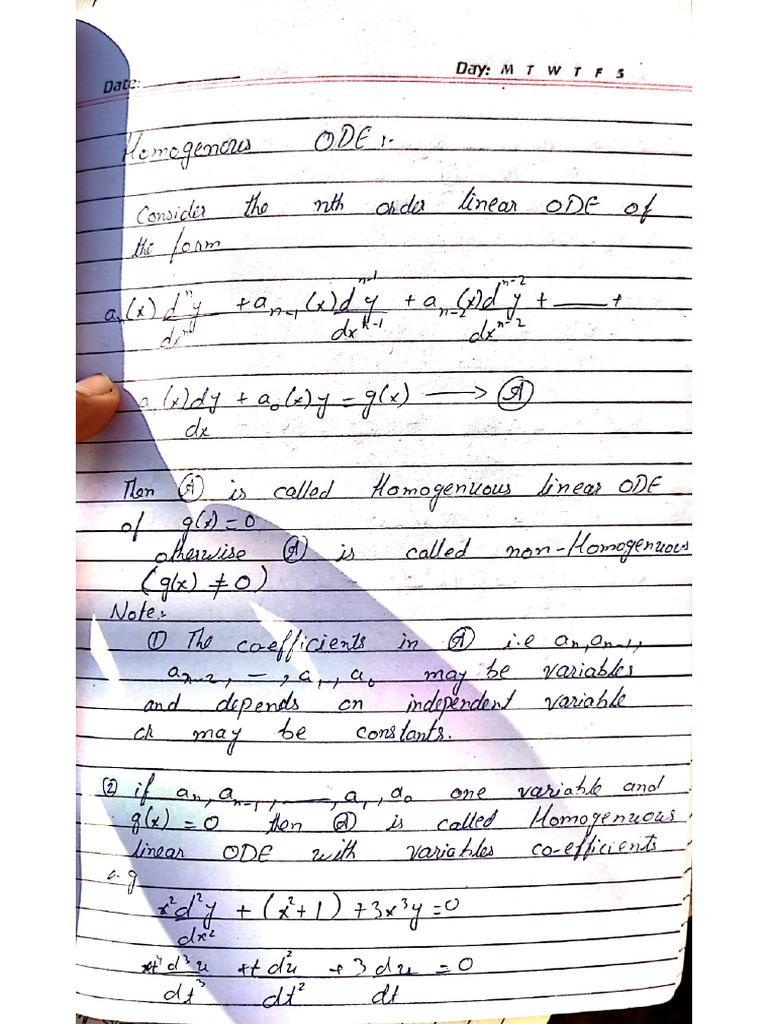 Date:
Day: M T W T F S
Homogenous ODE:-
Consider the nth order linear ODE of
the form
aₙ(x) dⁿy/dxⁿ + aₙ₋₁(x) dⁿ⁻¹y/dxⁿ⁻¹ + aₙ₋₂(x) dⁿ⁻²y/dxⁿ⁻² + ___ +
a₁(x) dy/dx + a₀(x)y = g(x) ⟶ Ⓐ
Then Ⓐ is called Homogenuous linear ODE
of g(x) = 0
otherwise Ⓐ is called non-Homogenuous
(g(x) ≠ 0)
Note:-
① The co-efficients in Ⓐ i.e aₙ, aₙ₋₁,
aₙ₋₂, –, a₁, a₀ may be variables
and depends on independent variable
or may be constants.
② if aₙ, aₙ₋₁, ___, a₁, a₀ one variable and
g(x) = 0 then Ⓐ is called Homogenuous
linear ODE with variables co-efficients
e.g
x² d²y/dx² + (x²+1) + 3x³y = 0
t⁴ d³u/dt³ + t d²u/dt² + 3 du/dt = 0